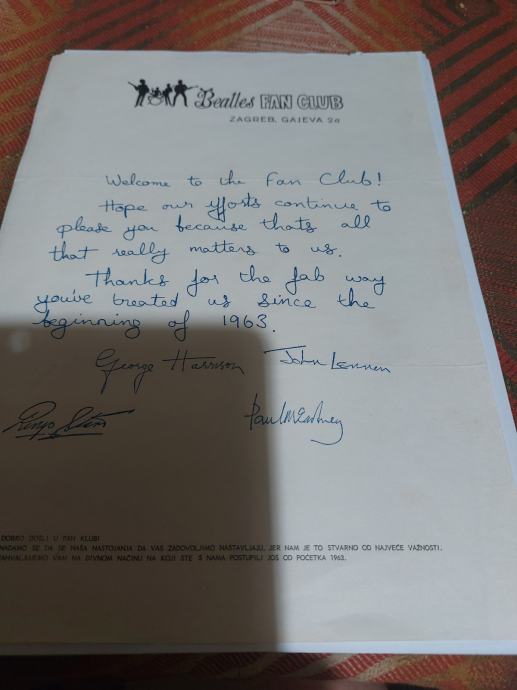 Beatles FAN CLUB
ZAGREB, GAJEVA 2a
Welcome to the Fan Club!
Hope our efforts continue to
please you because thats all
that really matters to us.
Thanks for the fab way
you've treated us since the
beginning of 1963.
George Harrison John Lennon
Ringo Starr Paul McCartney
DOBRO DOŠLI U FAN KLUB!
NADAMO SE DA SE NAŠA NASTOJANJA DA VAS ZADOVOLJIMO NASTAVLJAJU, JER NAM JE TO STVARNO OD NAJVEĆE VAŽNOSTI.
ZAHVALJUJEMO VAM NA DIVNOM NAČINU NA KOJI STE S NAMA POSTUPILI JOŠ OD POČETKA 1963.